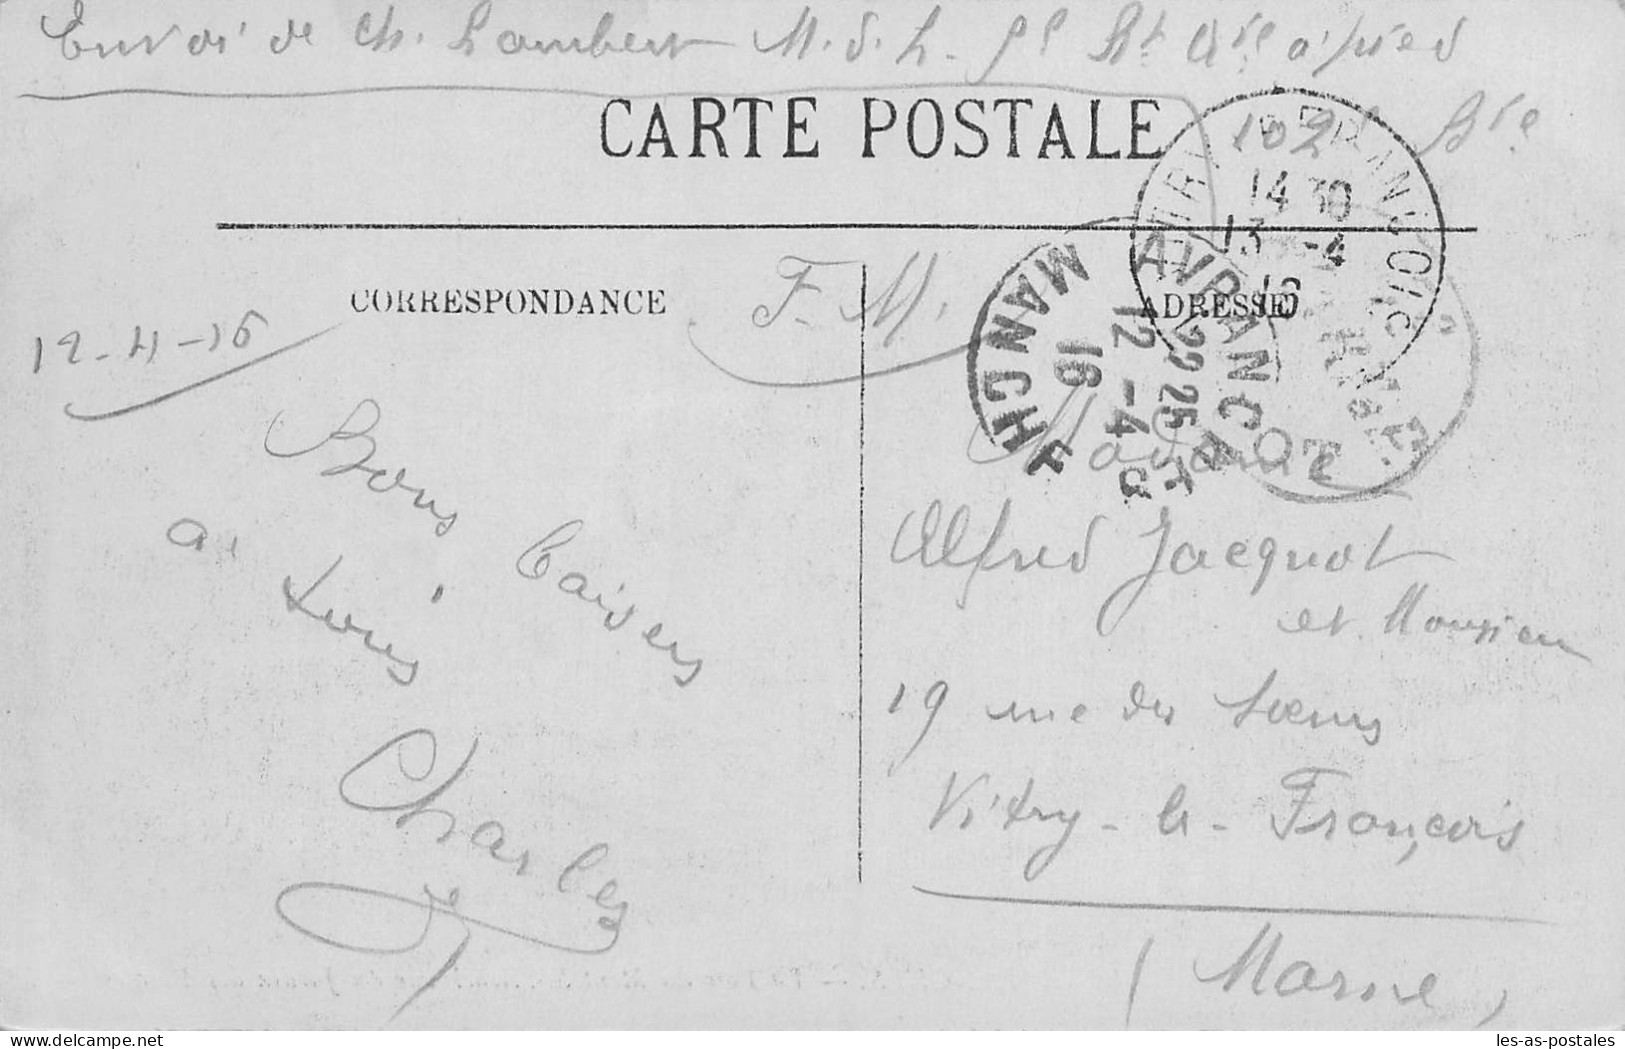 Envoi de Ch. Lambert M.d.L. Rt à pied
102 Bie
CARTE POSTALE
CORRESPONDANCE
ADRESSE
F.M.
12-4-16
Bons baisers
à tous
Charles
Madame
Alfred Jacquot
et Monsieur
19 rue des Sœurs
Vitry-le-François
(Marne)
14 30
13 -4
16
AVRANCHES
22 25
12 -4
16
MANCHE
delcampe.net
les-as-postales